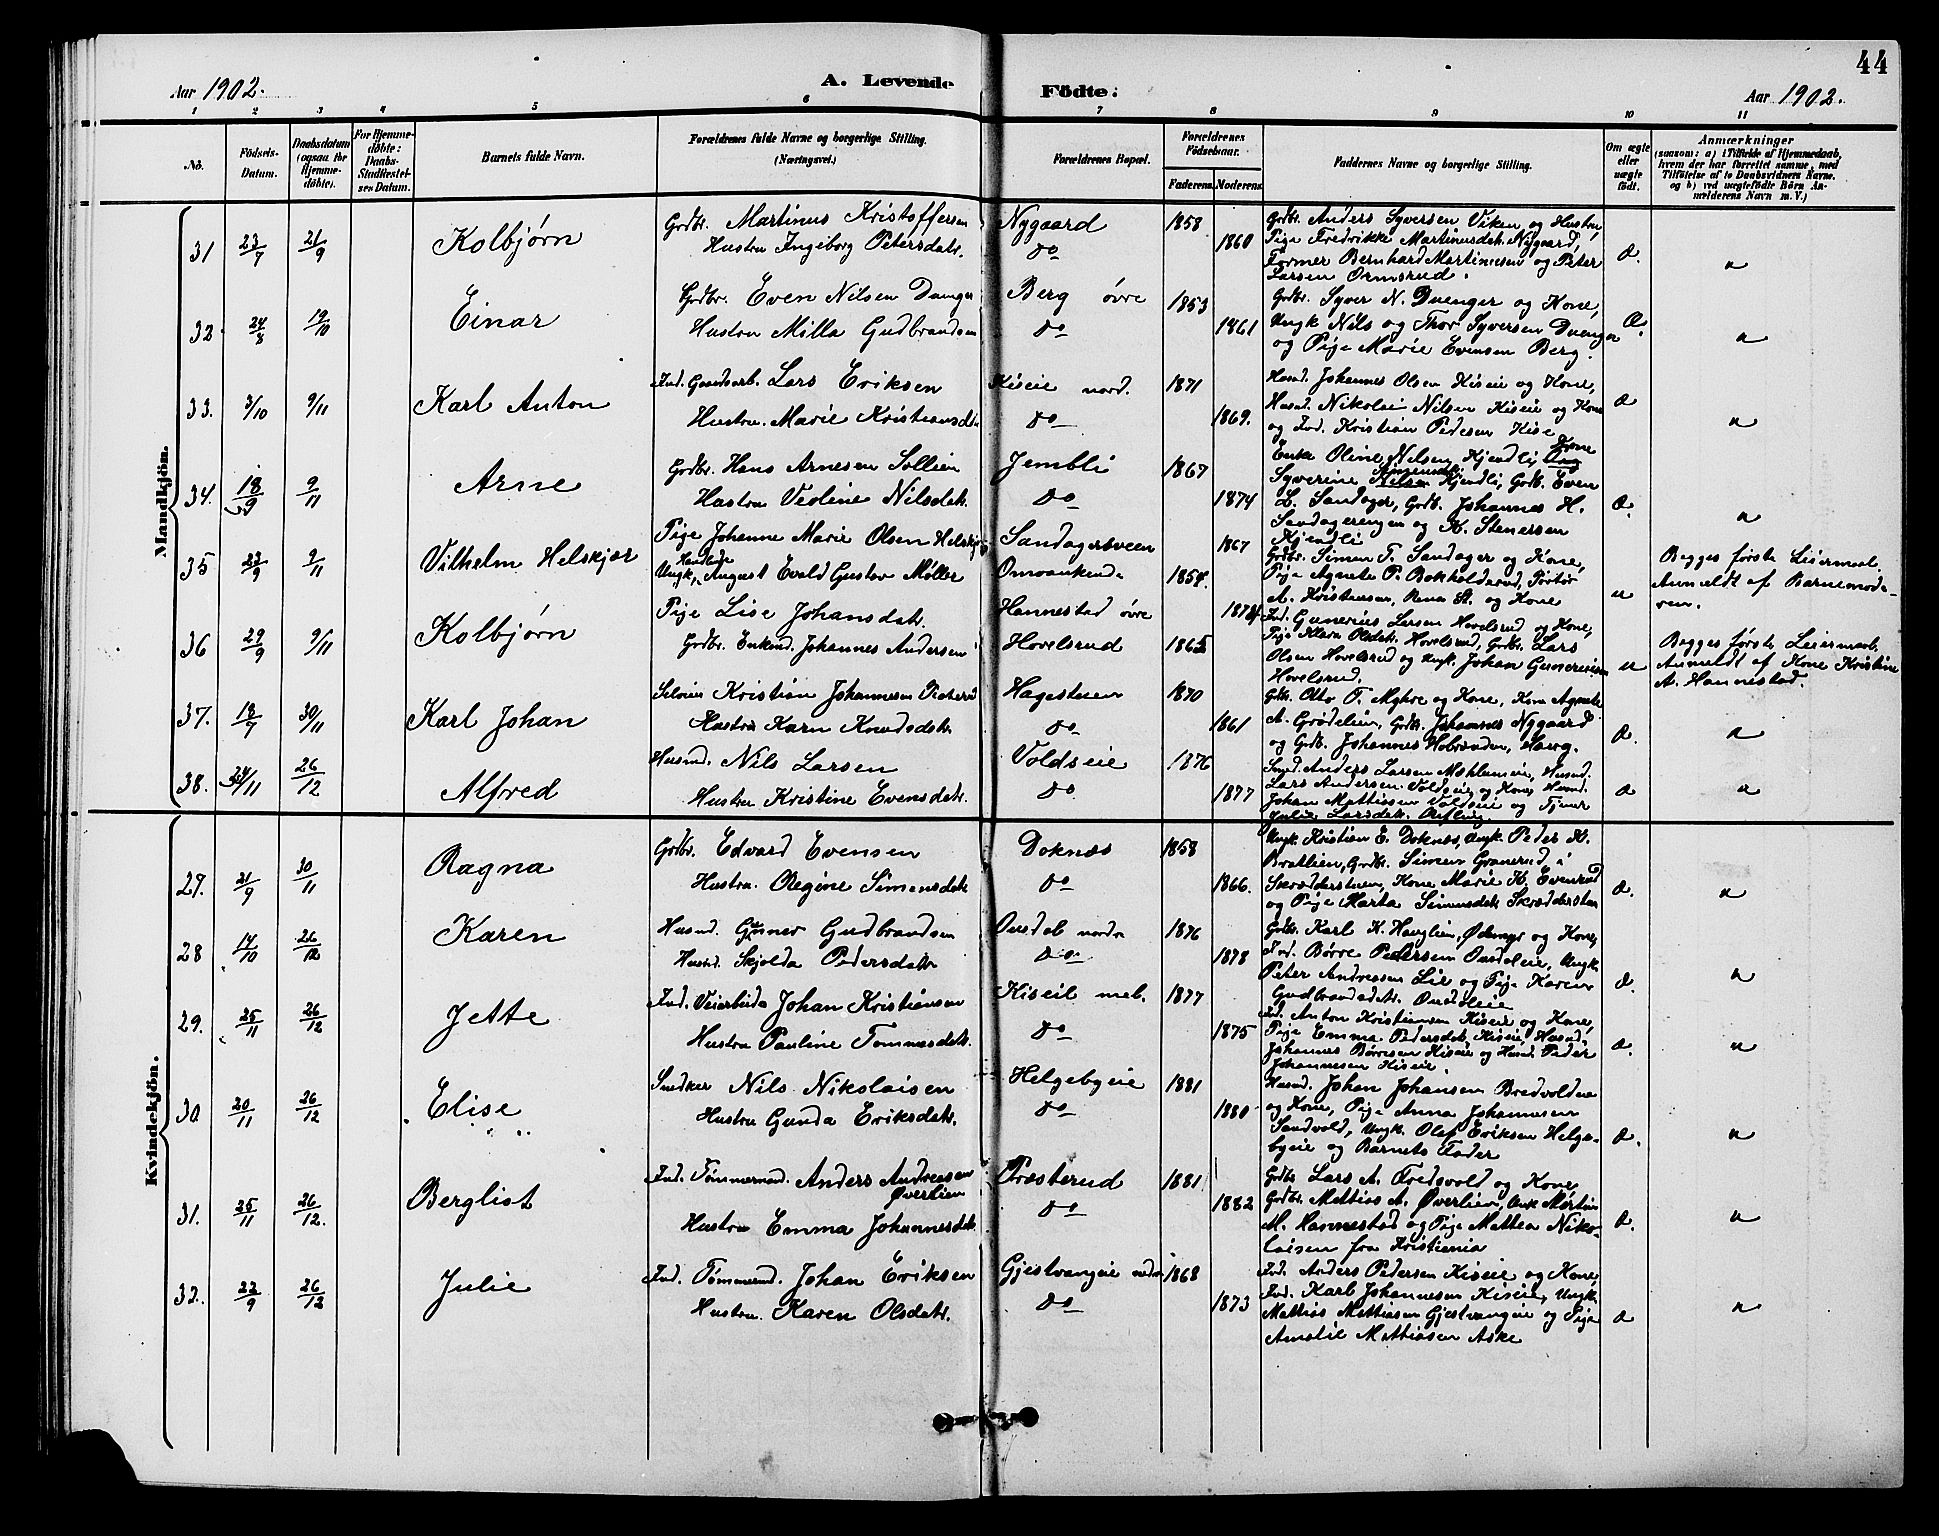 44
Aar 1902.
A. Levende
Födte:
Aar 1902.
1 2 3 4 5 6 7 8 9 10 11
No.
Födsels-
Datum.
Daabsdatum
(ogsaa for
Hjemme-
döbte).
For Hjemme-
döbte:
Daabs-
Stadfæstel-
ses Datum.
Barnets fulde Navn.
Forældrenes fulde Navne og borgerlige Stilling.
(Næringsvei.)
Forældrenes Bopæl.
Forældrenes
Födselsaar.
Faderens. Moderens.
Faddernes Navne og borgerlige Stilling.
Om ægte
eller
uægte
födt.
Anmærkninger
(saasom: a) i Tilfælde af Hjemmedaab,
hvem der har forrettet samme, med
Tilföielse af to Daabsvidners Navne.
og b) ved uægtefödte Börn An-
mælderens Navn m. V.)
Mandkjön.
31 23/7 21/9 Kolbjørn
Grdbr. Martinus Kristoffersen
Hustru Ingeborg Petersdatr.
Nygaard
do
1858
1860
Grdbr. Anders Syversen Viken og Hustru,
Pige Fredrikke Martinusdatr. Nygaard,
Former Bernhard Martinusen og Peter
Larsen Ormsrud.
Æ.
"
32 24/8 19/10 Einar
Grdbr. Even Nilsen Dænger
Hustru Milla Gudbrandsen
Berg øvre
do
1853
1861
Grdbr. Syver N. Dænger og Kone,
Ungk Nils og Thor Syversen Dænger
og Pige Marie Evensen Berg.
Æ.
"
33. 3/10 9/11 Karl Anton
Ind. Gaardsarb. Lars Eriksen
Hustru. Marie Kristiansdtr
Kiseie nord.
do
1871
1869.
Husmd. Johannes Olsen Kiseie og Kone,
Husmd. Nikolai Nilsen Kiseie og Kone
og Ind. Kristian Pedersen Kise
Æ
"
34. 18/9 9/11 Arne
Grdbr. Hans Arnesen Sollien
Hustru Verline Nilsdatr.
Jembli
do
1867
1874
Enke Oline Nilsen Kjendli, Kone
Syverine Kjendli, Grdb. Even
L. Sandager, Grdb. Johannes H.
Sandagerengen og K. Stenersen
Kjendli
Æ.
"
35 23/9 9/11 Vilhelm Helskjær
Pige Johanne Marie Olsen Helskjær
Handlende
Ungk. August Evald Gustav Møller
Sandagersveen
1867
1854.
Grdbr. Simen T. Sandager og Kone,
Pige Agnete P. Bokholdsrud, Portør
A. Kristiansen, Rena St. og Kone
u
Begges første Leiermaal.
Anmeldt af Barnemode-
ren.
36 29/9 9/11 Kolbjørn
Pige Lise Johansdatr.
Grdbr. Enkemd. Johannes Andersen
Hannestad øvre
Hovelsrud
1865
Ind. Gunerius Larsen Hovelsrud og Kone,
Pige Klara Olsdatr. Hovelsrud, Grdbr. Lars
Olsen Hovelsrud og Ungk. Johan Gunerisen
Hovelsrud.
u
Begges første Leiermaal.
Anmeldt af Kone Kristine
A. Hannestad.
37. 18/7 30/11 Karl Johan
Kristian Johannesen
Hustru Karen Knudsdatr.
Hagestuen
do
1870
1861
Grdbr. Otto T. Myhre og Kone, Kone Agnete
A. Grødelien, Grdb. Johannes Nygaard
og Grdb. Johannes Hobrænden, Haug.
Æ.
"
38. 24/11 26/12 Alfred
Husmd. Nils Larsen
Hustru Kristine Evensdatr.
Voldseie
do
1876
1877
Smed. Anders Larsen Mæhlumeie, Husmd.
Lars Andersen Voldseie og Kone, Husmd.
Johan Mattissen Voldseie og Tjener
Julie Larsdatr.
Æ
"
Kvindekjön.
27. 21/9 30/11 Ragna
Grdbr. Edvard Evensen
Hustru. Regine Simensdatr
Doknæs
do
1858
1866.
Ungk. Kristian E. Doknæs, Ungk. Peder K.
Bratlien, Grdbr. Simen Granerud, i
Skrædderstuen, Kone Marie K. Evenrud
og Pige Marta Simensdatr Skrædderstuen
Æ.
"
28 14/10 26/12 Karen
Husmd. Gunner Gudbrandsen
Hustd. Skjolda Pedersdatr
do
1876
1878
Grdbr. Karl K. Hauglien, Ødemyr og Kone,
Ind. Børre Pedersen Ousdaleie, Ungk.
Peter Andreassen Lie og Pige Karen
Gudbrandsdatr.
Æ.
"
29. 25/11 26/12 Jette
Ind. Veiarbeider Johan Kristiansen
Hustru Pauline Tommesdatr.
Kiseie mel.
do
1877
1875
Ind. Anton Kristiansen Kiseie og Kone,
Pige Emma Pedersdatr. Kiseie, Husmd.
Johannes Børresen Kiseie og Husmd. Peder
Johannesen Kiseie.
Æ.
"
30 20/11 26/12 Elise
Snedker Nils Nikolaisen
Hustru Gunda Eriksdatr.
Helgebyeie
do
1881
1880
Husmd. Johan Johansen Bredvolden
og Kone, Pige Anna Johannesen
Sandvold, Ungk. Olaf Eriksen Helge-
byeie og Barnets Fader
Æ.
"
31. 25/11 26/12. Bergliot
Ind. Tømmermd. Anders Andreasen
Øverlien
Hustru Emma Johannesdatr.
Præsterud
do
1881
1882
Grdbr Lars A. Fredsvold og Kone,
Grdbr. Mattias A. Øverlien, Enk. Martin
M. Hannestad og Pige Mattea Niko-
laisen fra Kristiania
Æ.
"
32. 22/9 26/12 Julie
Ind. Tømmermd. Johan Eriksen
Hustru. Karen Olsdatr.
Gjestvangeie nedre
do
1868
1873
Ind. Anders Pedersen Kiseie og Kone,
Ind. Karl Johannesen Kiseie, Ungk.
Mattias Mattiasen Gjestvangeie og Pige
Amalie Mattiasen Aske
Æ
"